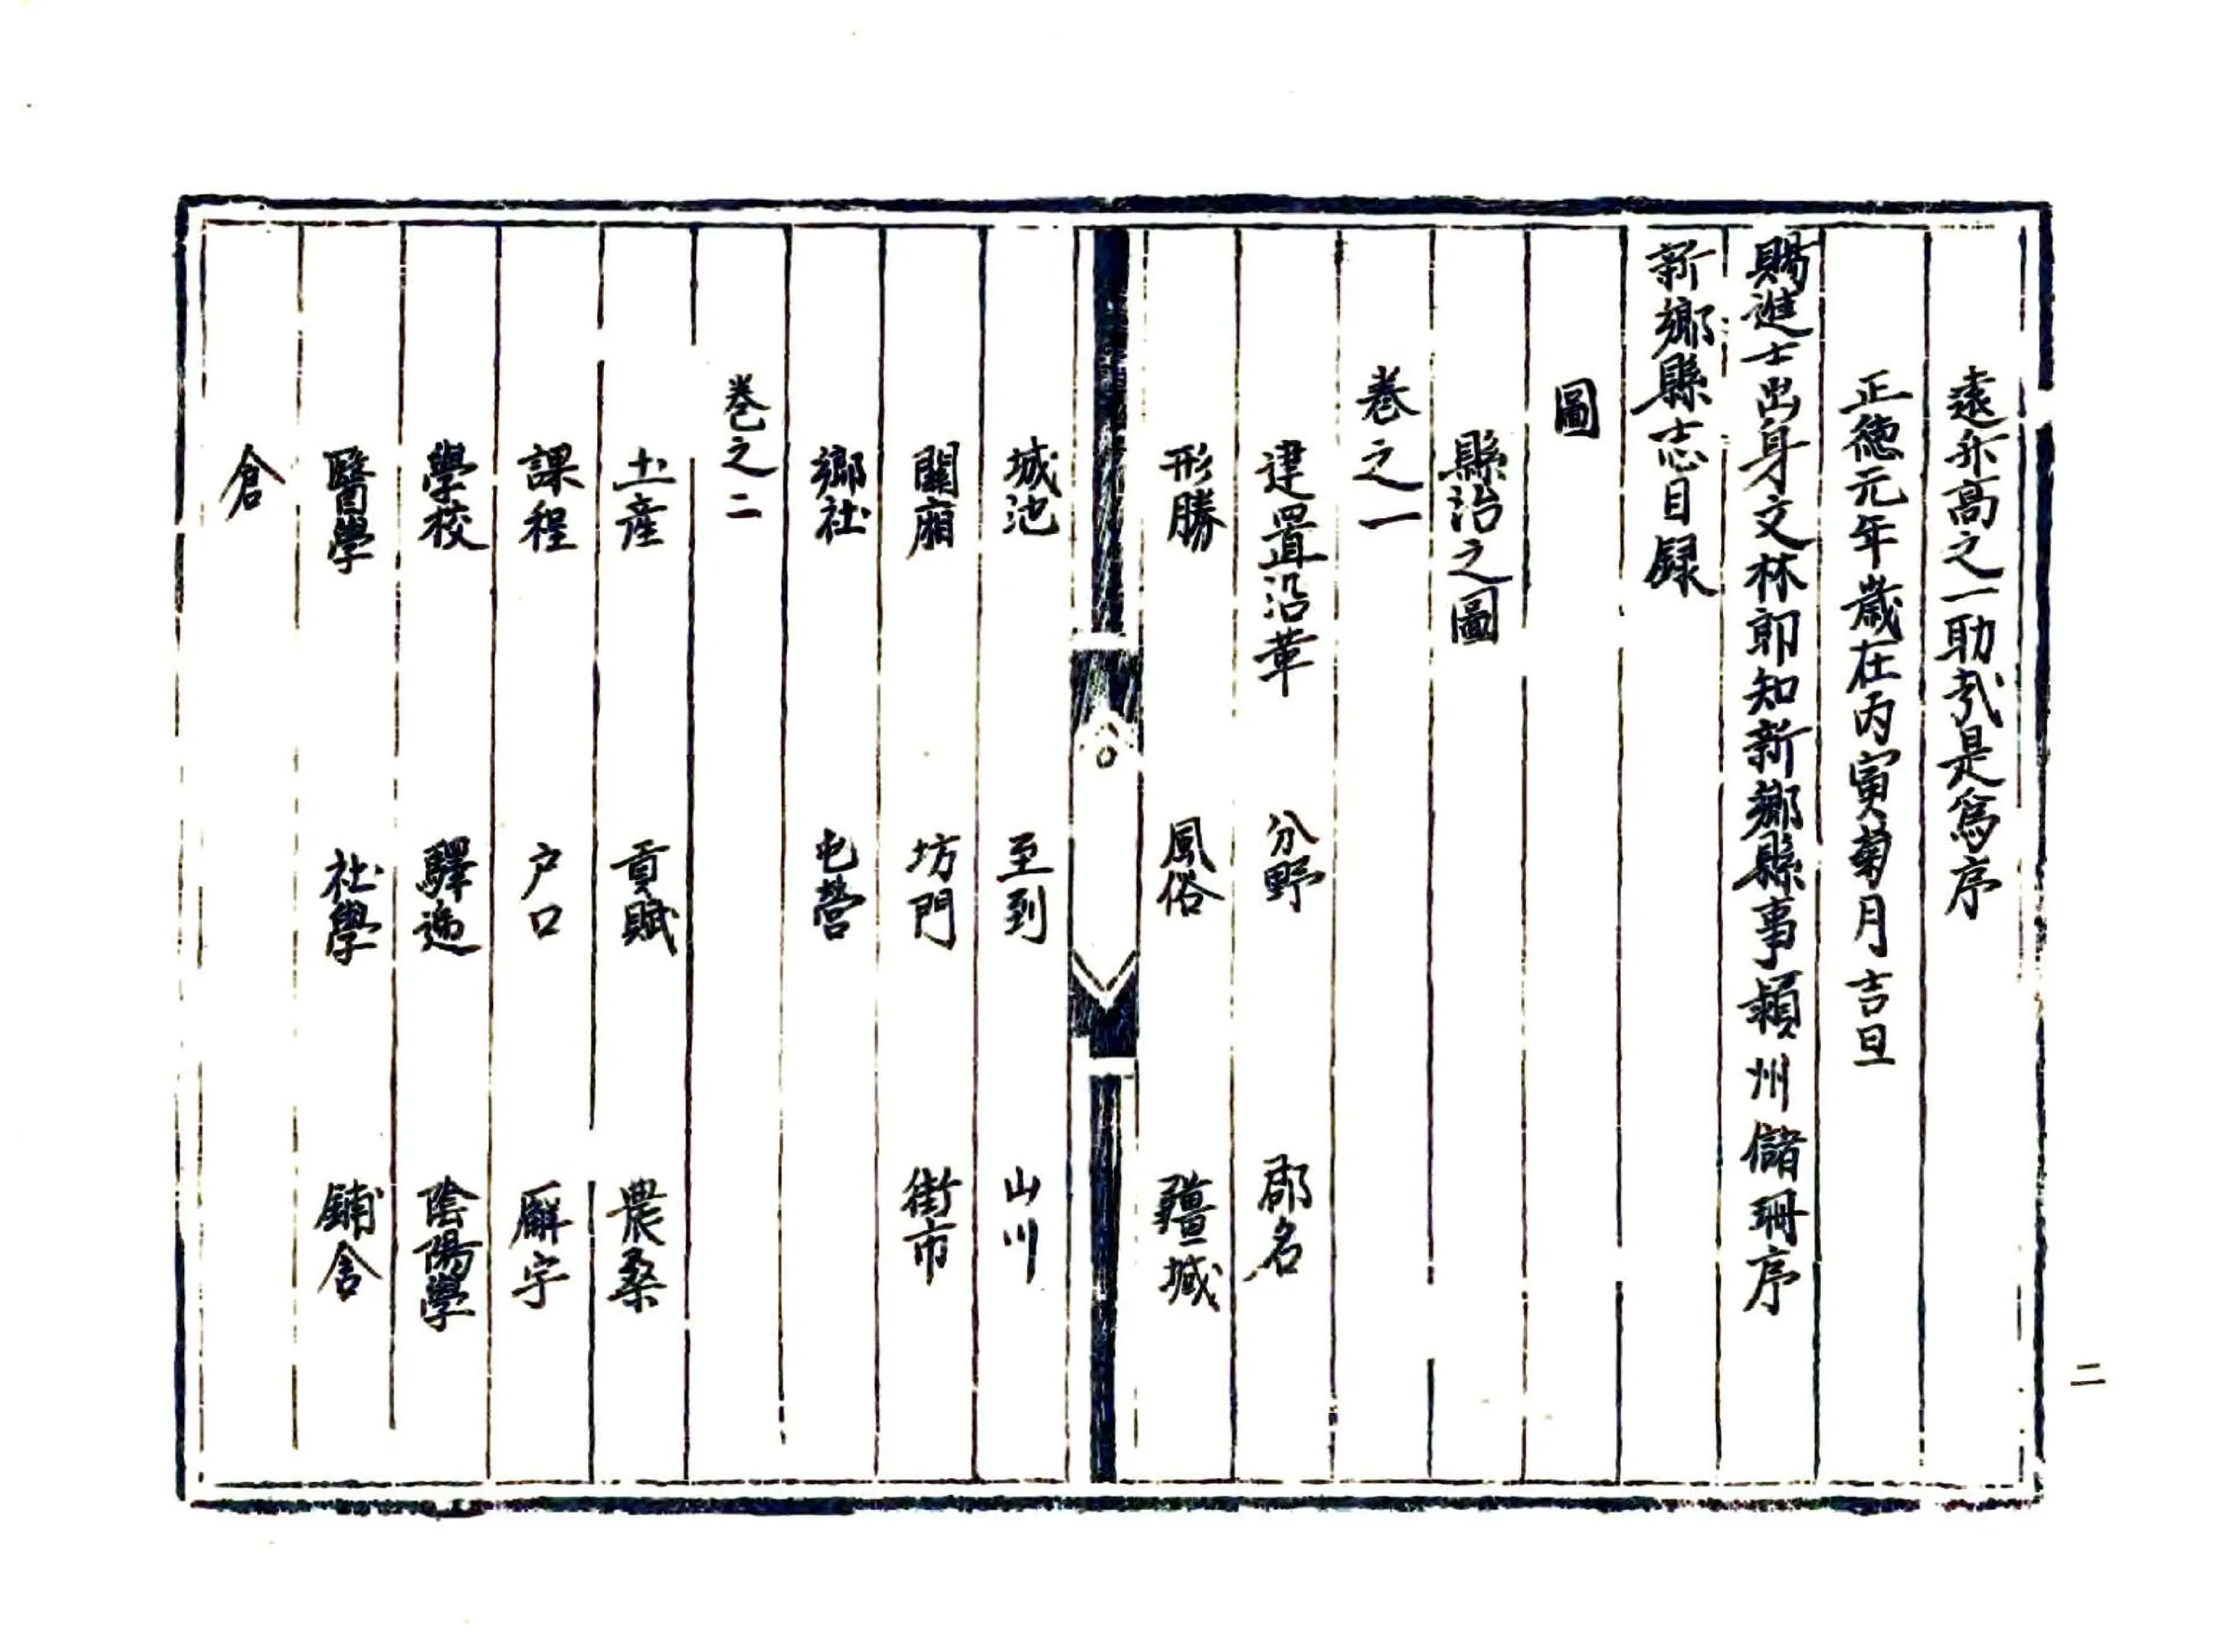 遠升高之一助㢤是爲序
正德元年歲在丙寅菊月吉旦
賜進士出身文林郎知新鄉縣事潁州儲珊序
新鄉縣志目録
圖
縣治之圖
卷之一
建置沿革 分野 郡名
形勝 風俗 疆域
城池 至到 山川
關廂 坊門 街市
鄉社 屯營
卷之二
土產 貢賦 農桑
課程 户口 廨宇
學校 驛遞 陰陽學
醫學 社學 鋪舍
倉
二